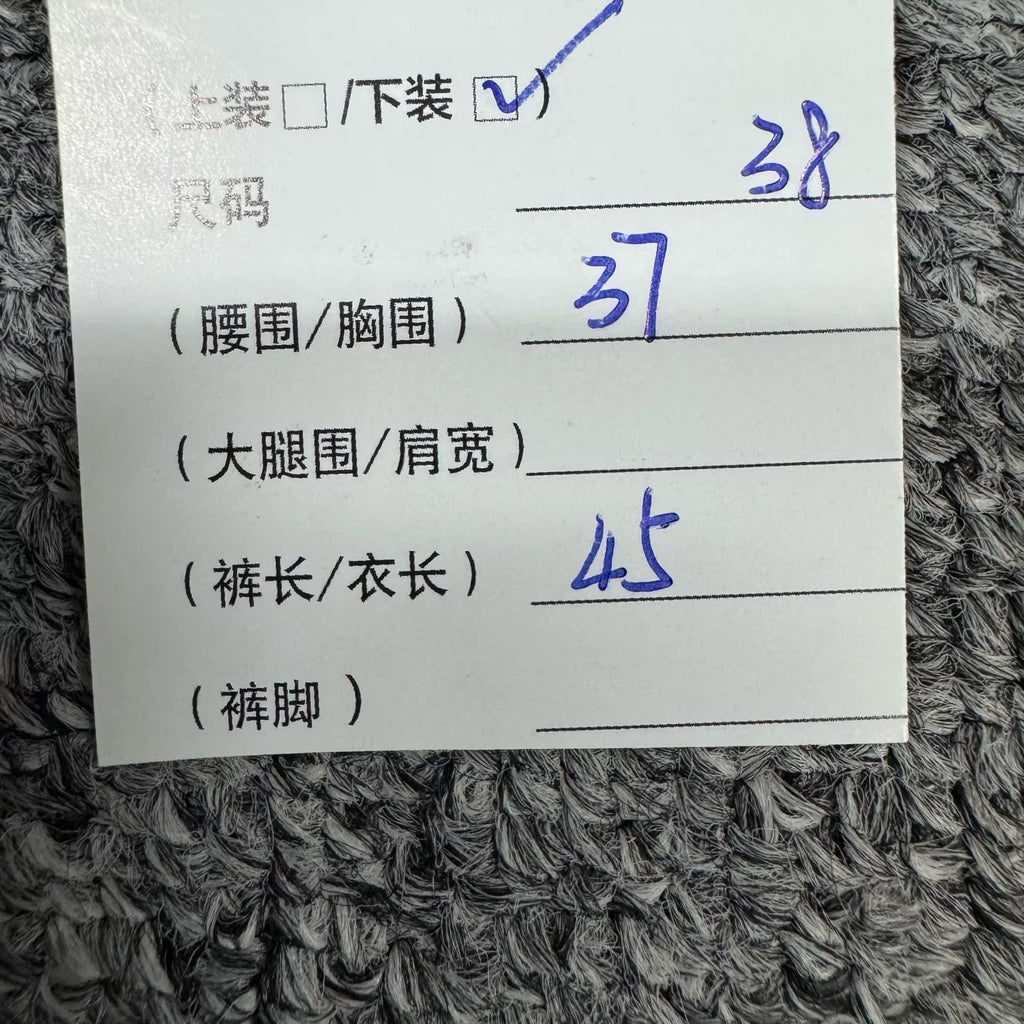 (上装□/下装☑)
尺码 38
(腰围/胸围) 37
(大腿围/肩宽)
(裤长/衣长) 45
(裤脚 )